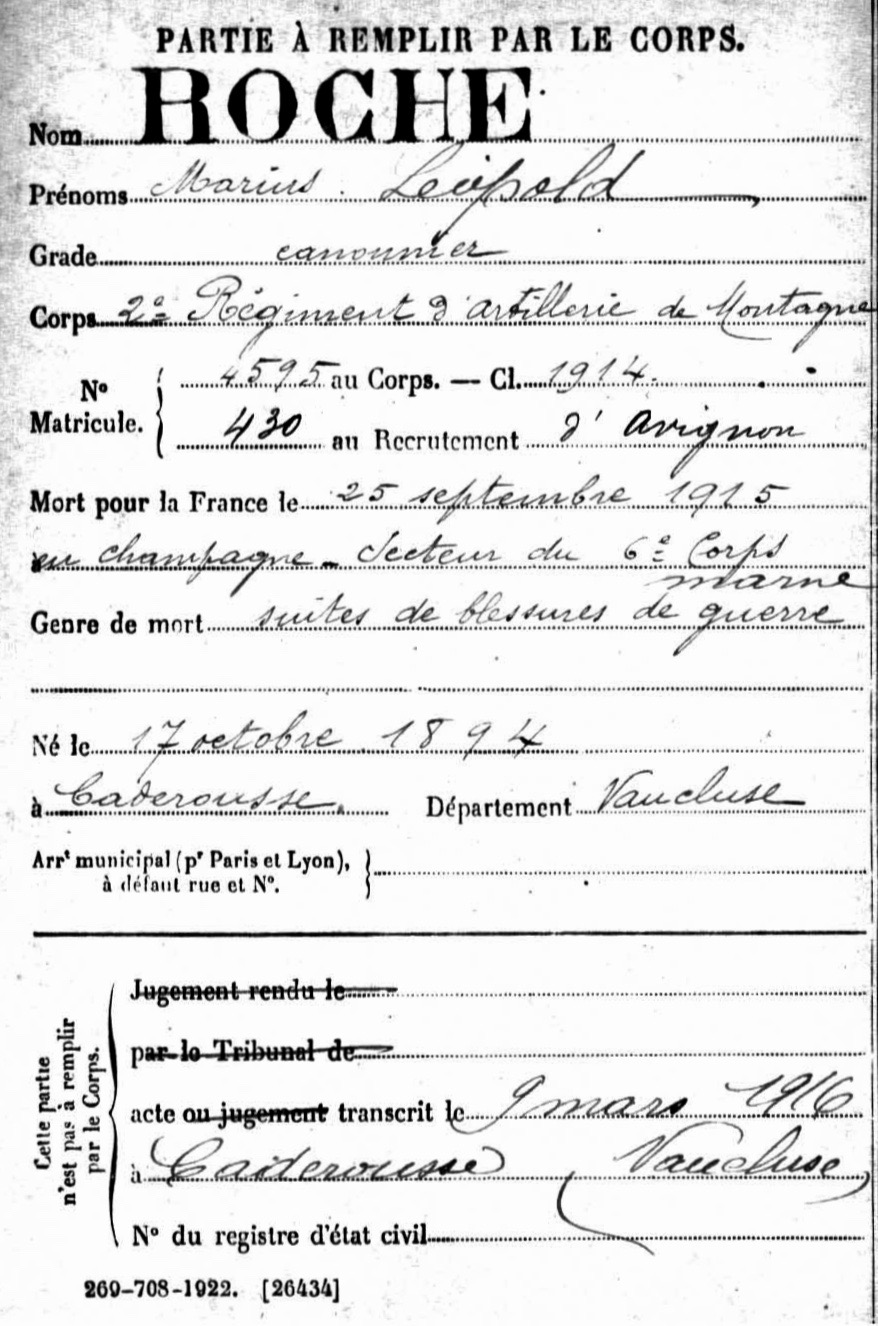 PARTIE À REMPLIR PAR LE CORPS.
Nom ROCHE
Prénoms Marius Léopold
Grade canonnier
Corps 2e Régiment d'artillerie de Montagne
No Matricule. { 4595 au Corps. — Cl. 1914.
430 au Recrutement d'Avignon
Mort pour la France le 25 septembre 1915
en champagne - Secteur du 6e Corps
marne
Genre de mort suites de blessures de guerre
Né le 17 octobre 1894
à Caderousse. Département Vaucluse
Arrt municipal (pr Paris et Lyon),
à défaut rue et No.
Cette partie
n'est pas à remplir
par le Corps.
Jugement rendu le
par le Tribunal de
acte ou jugement transcrit le 9 mars 1916
à Caderousse (Vaucluse)
No du registre d'état civil
269-708-1922. [26434]